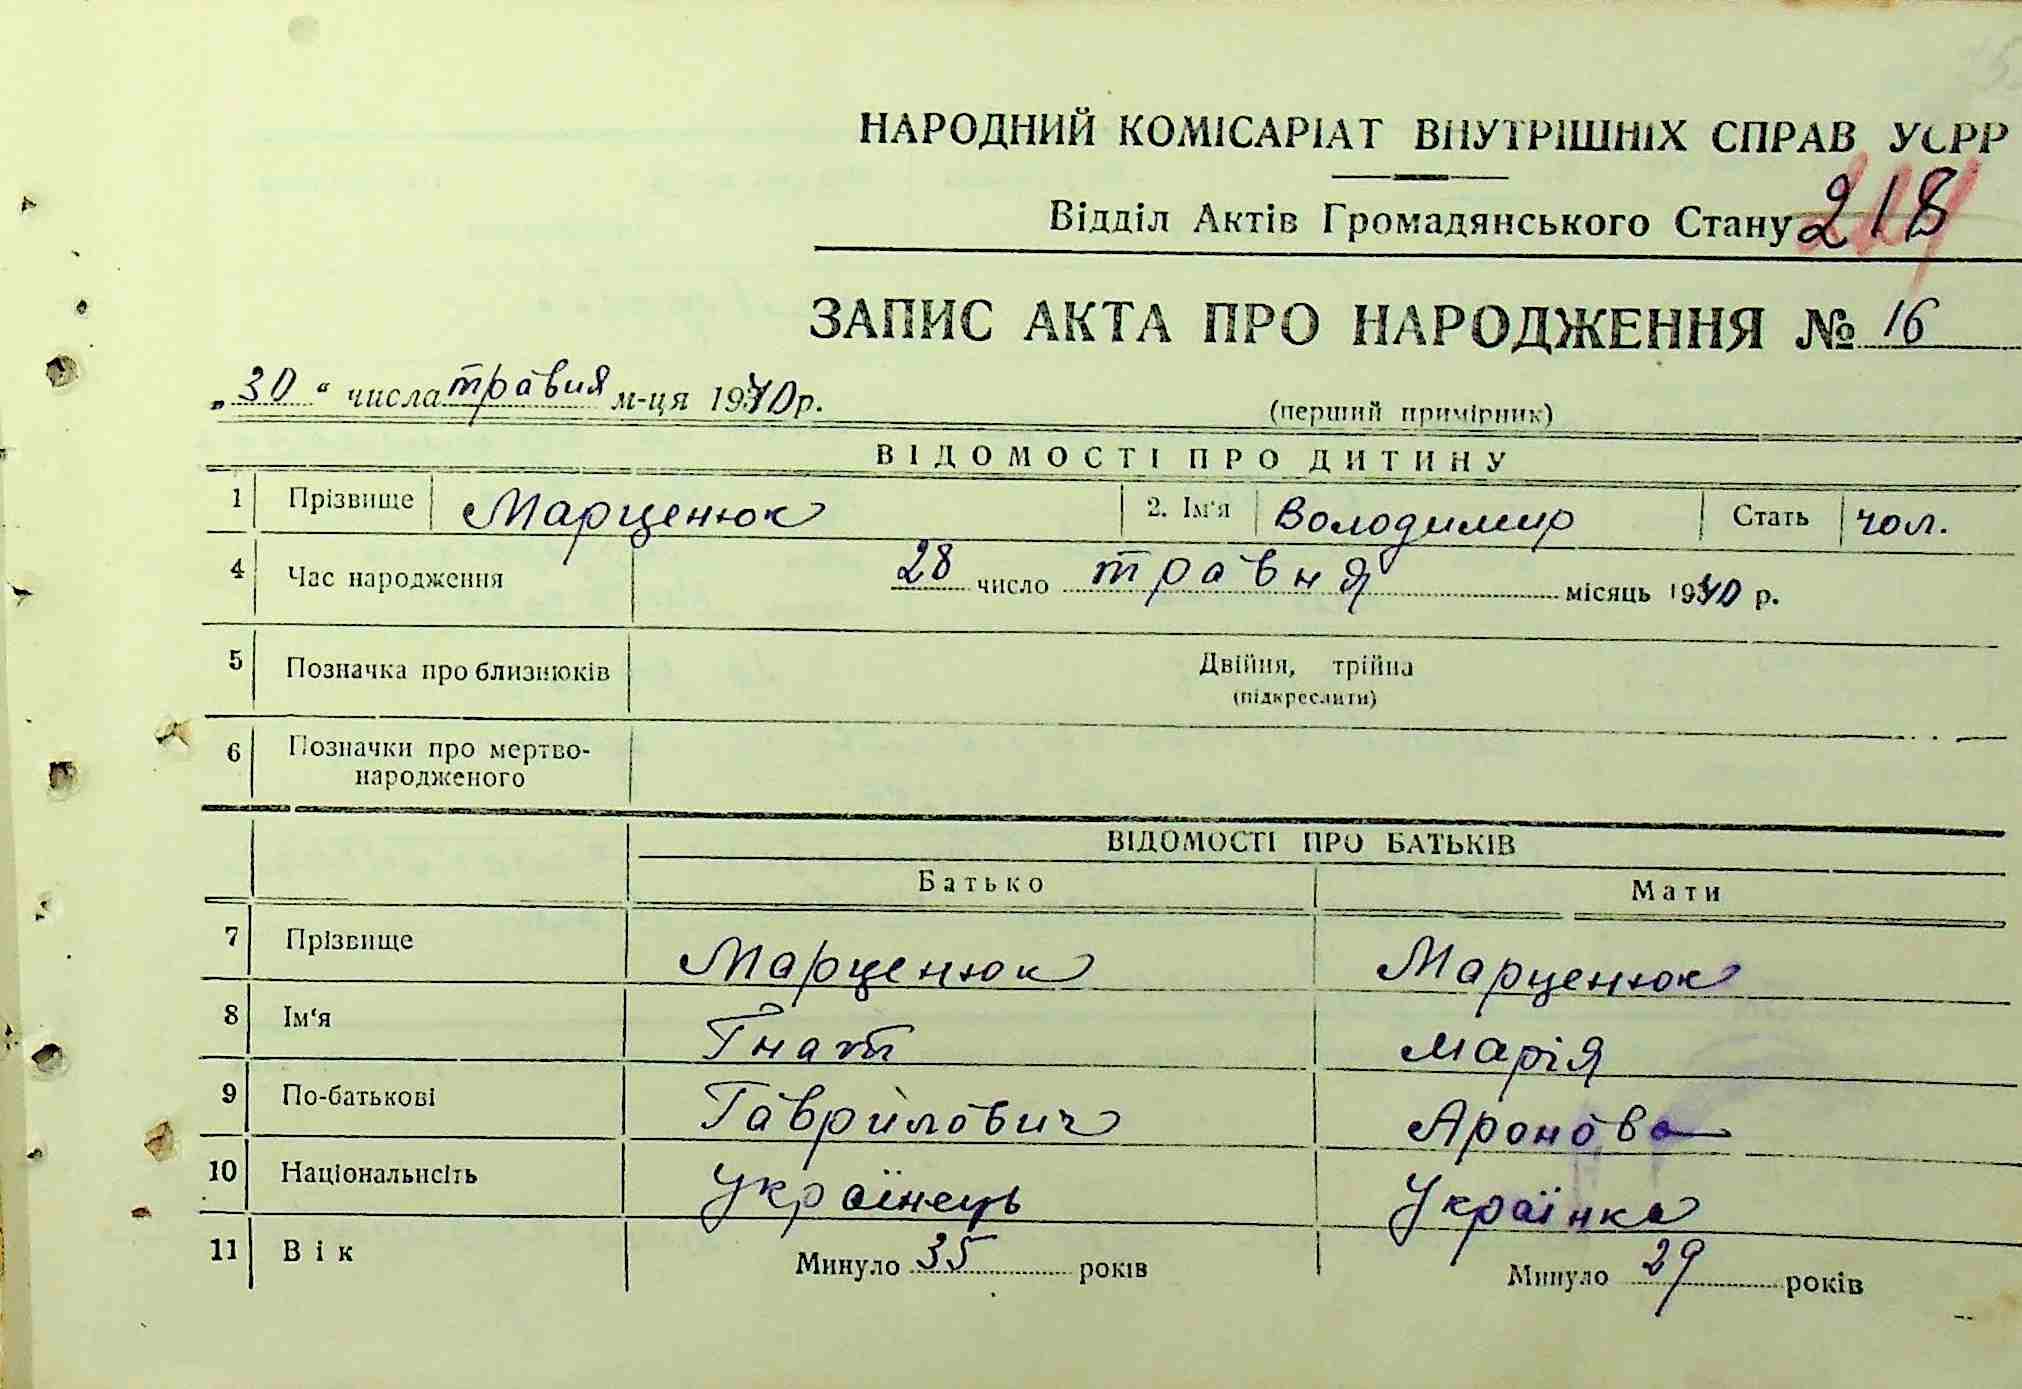 НАРОДНИЙ КОМІСАРІАТ ВНУТРІШНІХ СПРАВ УСРР
Відділ Актів Громадянського Стану 218
ЗАПИС АКТА ПРО НАРОДЖЕННЯ № 16
„30“ числа травня м-ця 1940 р.
(перший примірник)
ВІДОМОСТІ ПРО ДИТИНУ
1 Прізвище Марценюк 2. Ім'я Володимир Стать чол.
4 Час народження 28 число травня місяць 1940 р.
5 Позначка про близнюків Двійня, трійна
(підкреслити)
6 Позначки про мертво-
народженого
ВІДОМОСТІ ПРО БАТЬКІВ
Батько Мати
7 Прізвище Марценюк Марценюк
8 Ім'я Гнат Марія
9 По-батькові Гаврилович Аронова
10 Національність Українець Українка
11 Вік Минуло 35 років Минуло 29 років